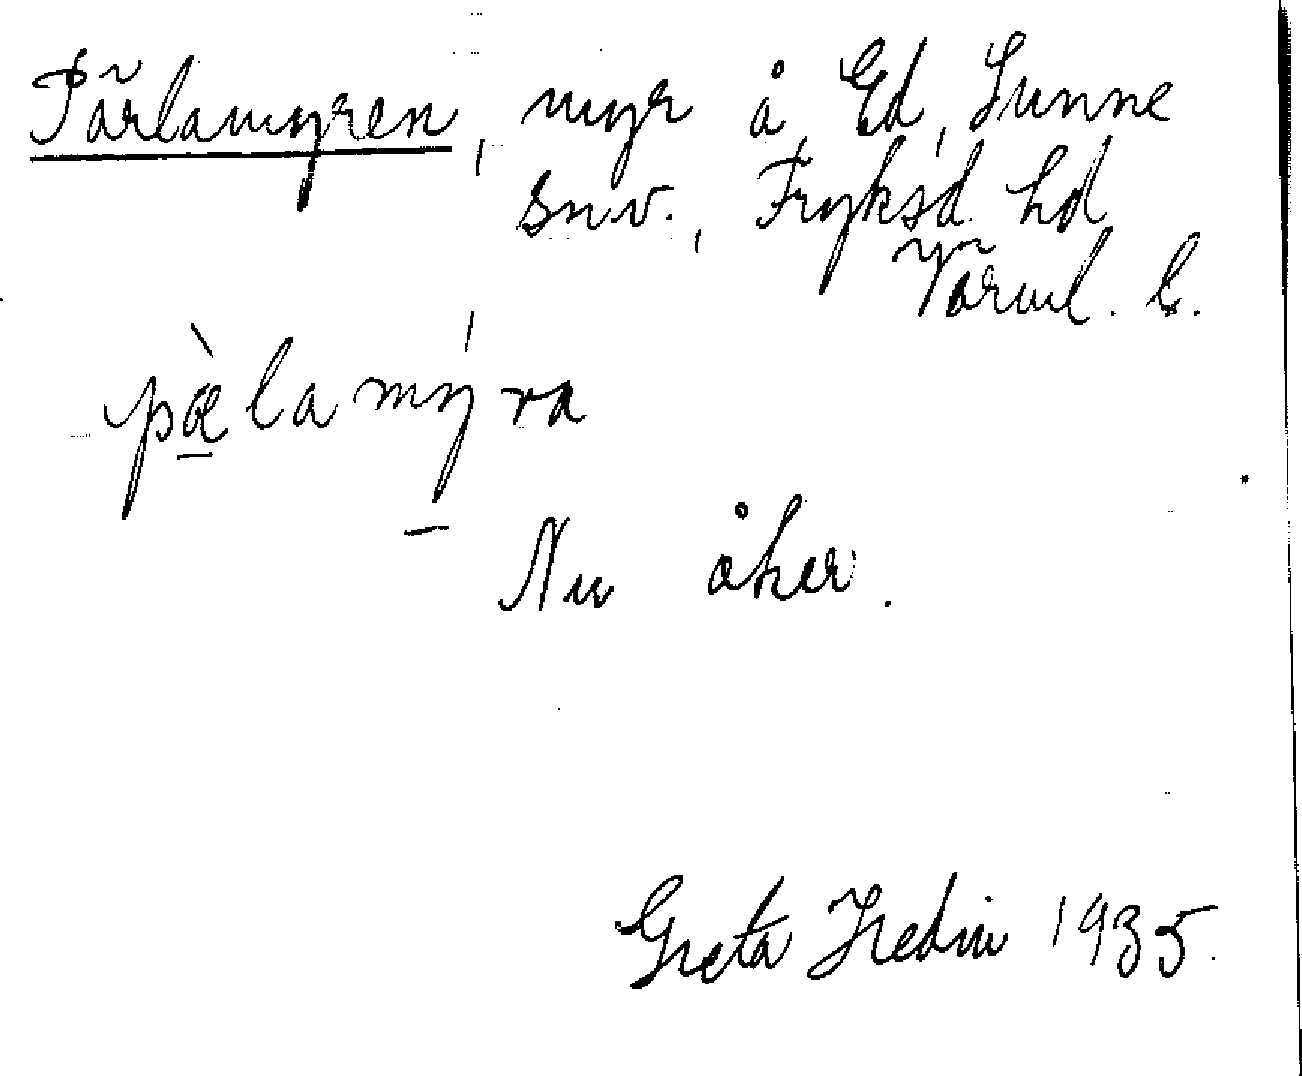 Pärlamyren, myr å Ed, Sunne
snv., Fryksd. hd
Värml. l.
pæ̀la mý ra
Nu åker.
Greta Hedin 1935.